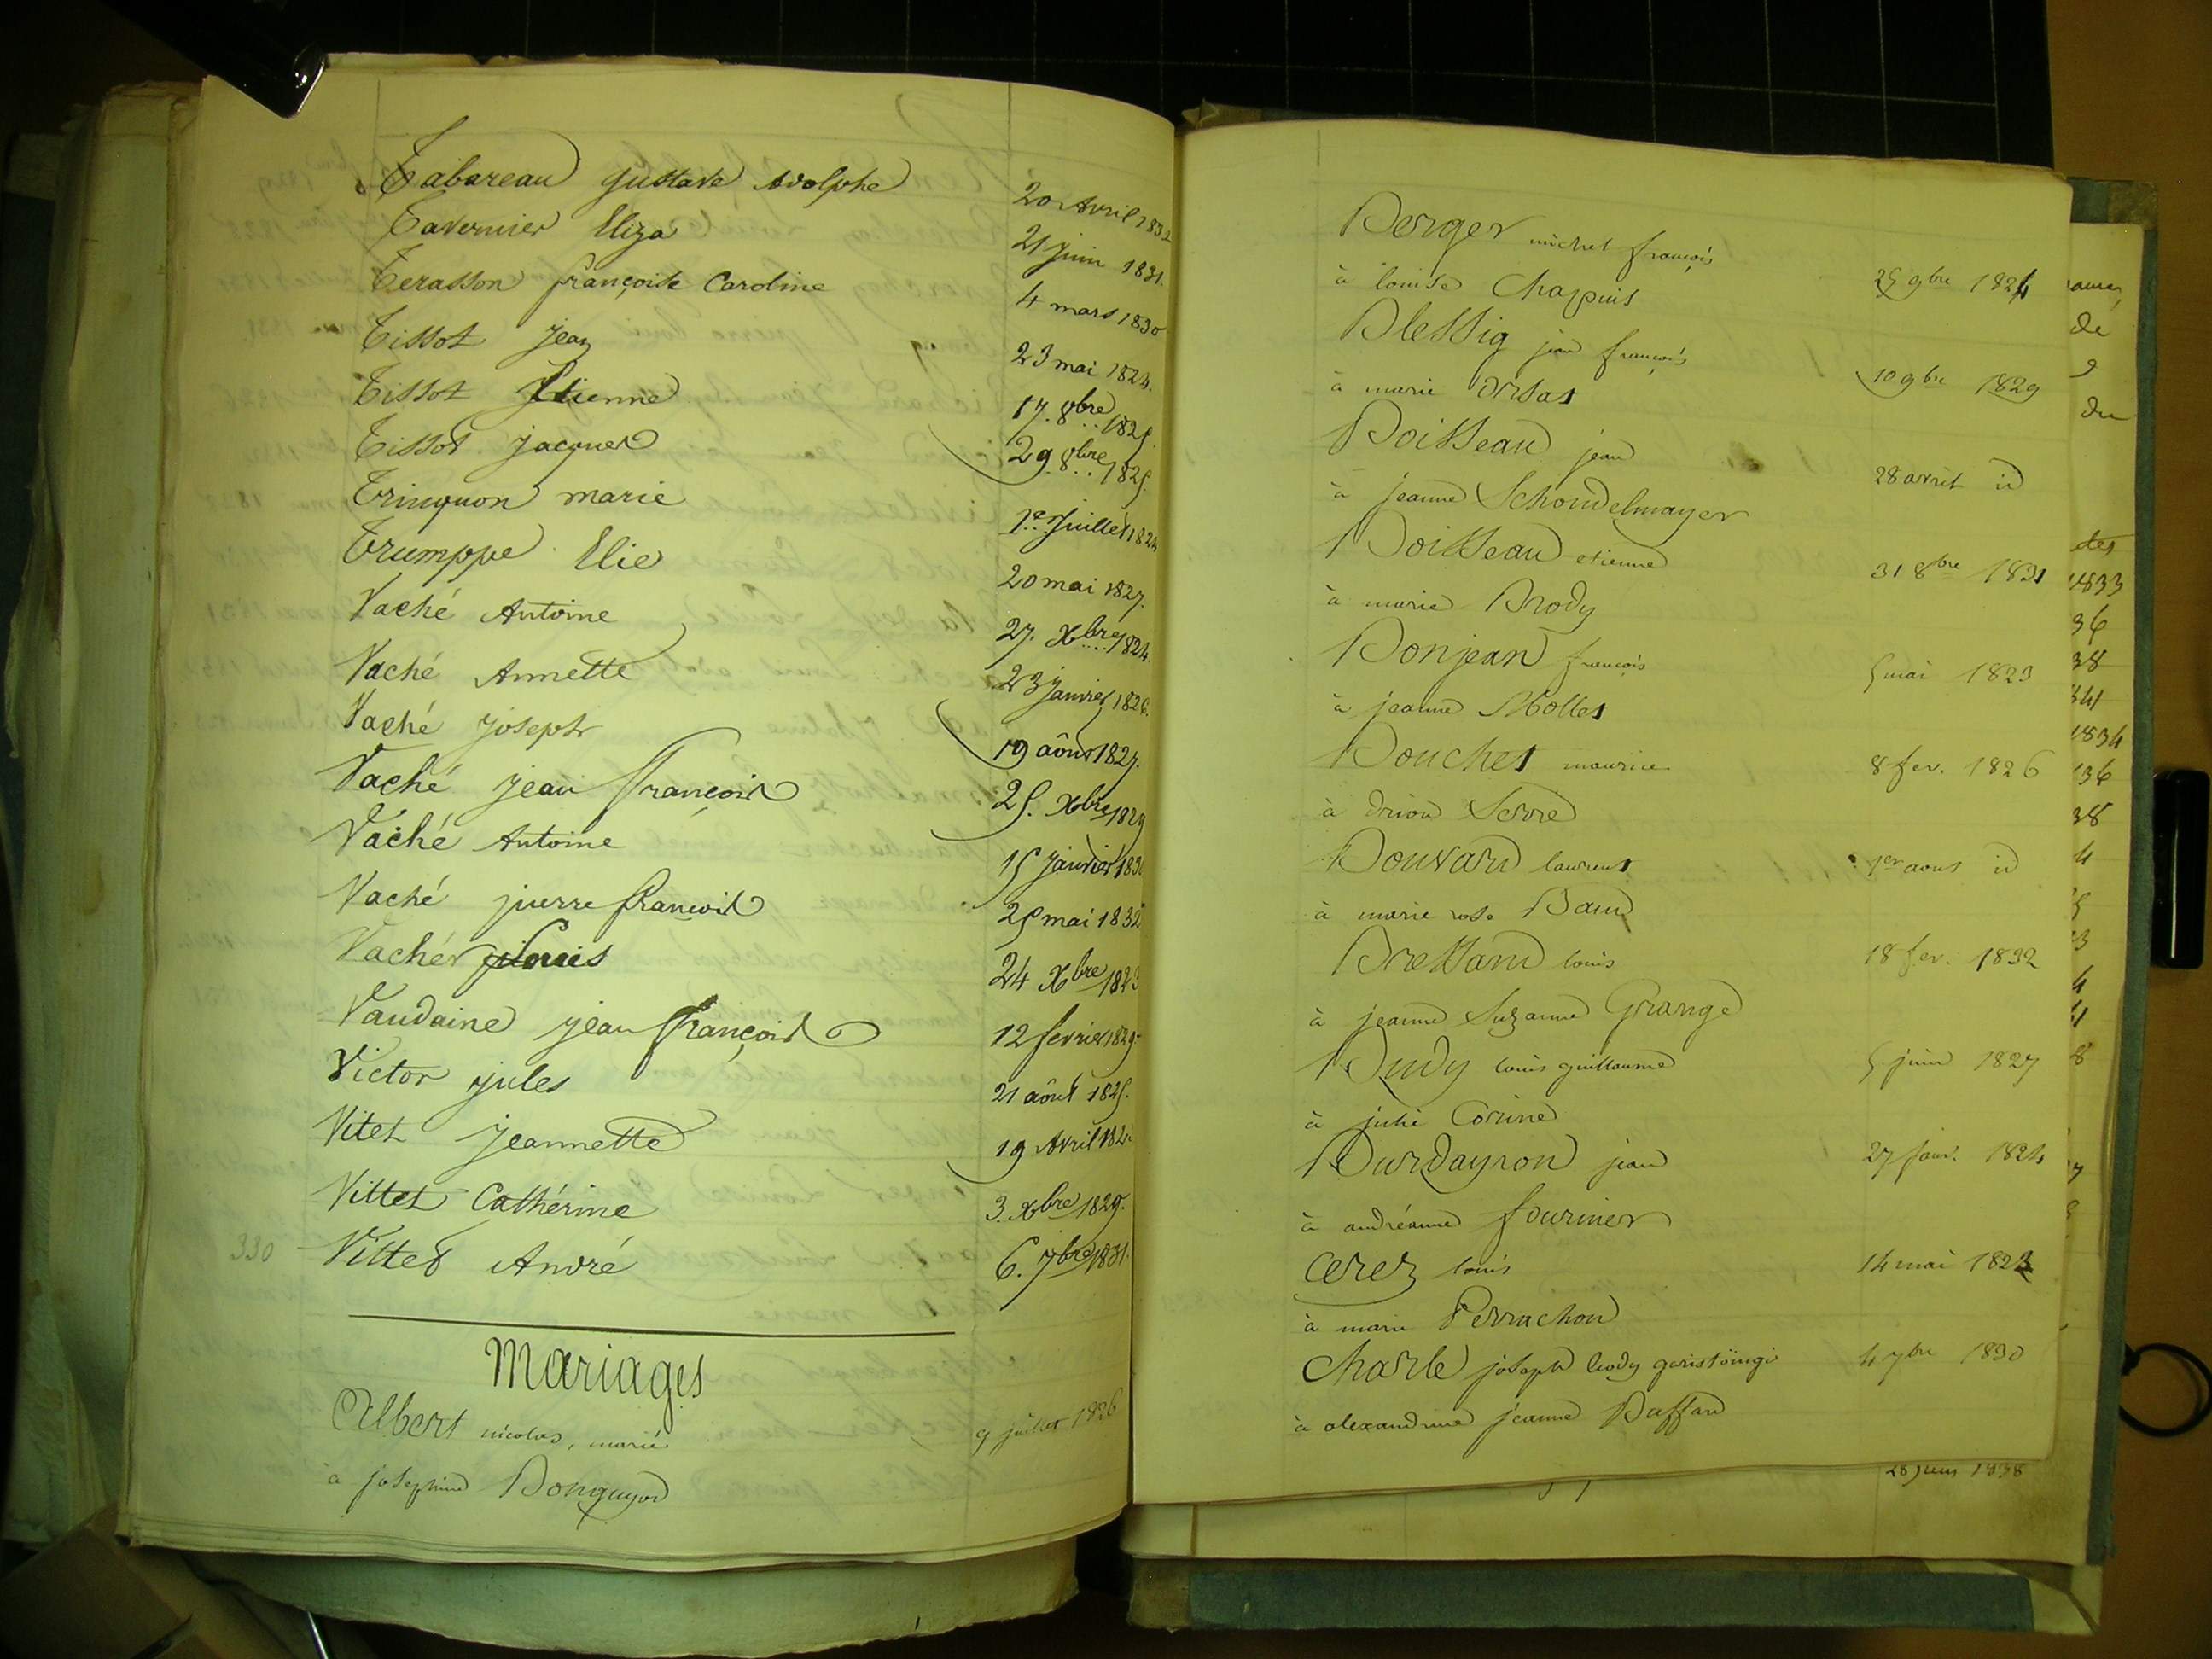 Tabareau gustave adolphe 20 Avril 1832
Tavernier Eliza 21 juin 1831.
Terasson françoise Caroline 4 mars 1830
Tissot jean 23 mai 1824.
Tissot Etienne 17. 8bre 1825.
Tissot jacques 29. 8bre 1825.
Trinquon marie 1er juillet 1824
Trumppe Elie 20 mai 1827.
Vaché Antoine 27. Xbre 1824.
Vaché Annette 23 janvier 1826.
Vaché joseph 19 août 1827.
Vaché jean françois 25. Xbre 1829
Vaché Antoine 15 janvier 1830
Vaché pierre françois 25 mai 1832
Vacher Louis 24 Xbre 1823
Vaudaine jean françois 12 fevrier 1829.
Victor jules 21 août 1825.
Vitet jeannette 19 Avril
Vittet Cathérine 3. Xbre 1829.
330 Vittet André 6. 7bre 1831.
Mariages
Albert nicolas, marié 9 juillet 1826
à josephine
Berger michel françois
à louise Chappuis 25 9bre 1824
Blessig jean françois
à marie Orsat 10 9bre 1829
Boisseau jean
à jeanne Schoudelmayer 28 avril id
Boisseau etienne
à marie Brody 31 8bre 1831
Bonjean françois
à jeanne Mollet 5 mai 1823
Bouchet maurice
à Serre 8 fev. 1826
Bouvard laurent
à marie rose Baud 1er aout id
Bressand louis
à jeanne Suzanne Grange 18 fev. 1832
Budy louis guillaume
à julie Corine 5 juin 1827
Burdayron jean
à andréanne fournier 27 janv. 1824
Cerez louis
à marie Perrachon 14 mai 1823
Charle joseph
à alexandrine jeanne Buffard 4 7bre 1830
de
9
du
des
1833
36
38
341
1834
136
38
4
28 juin 1838